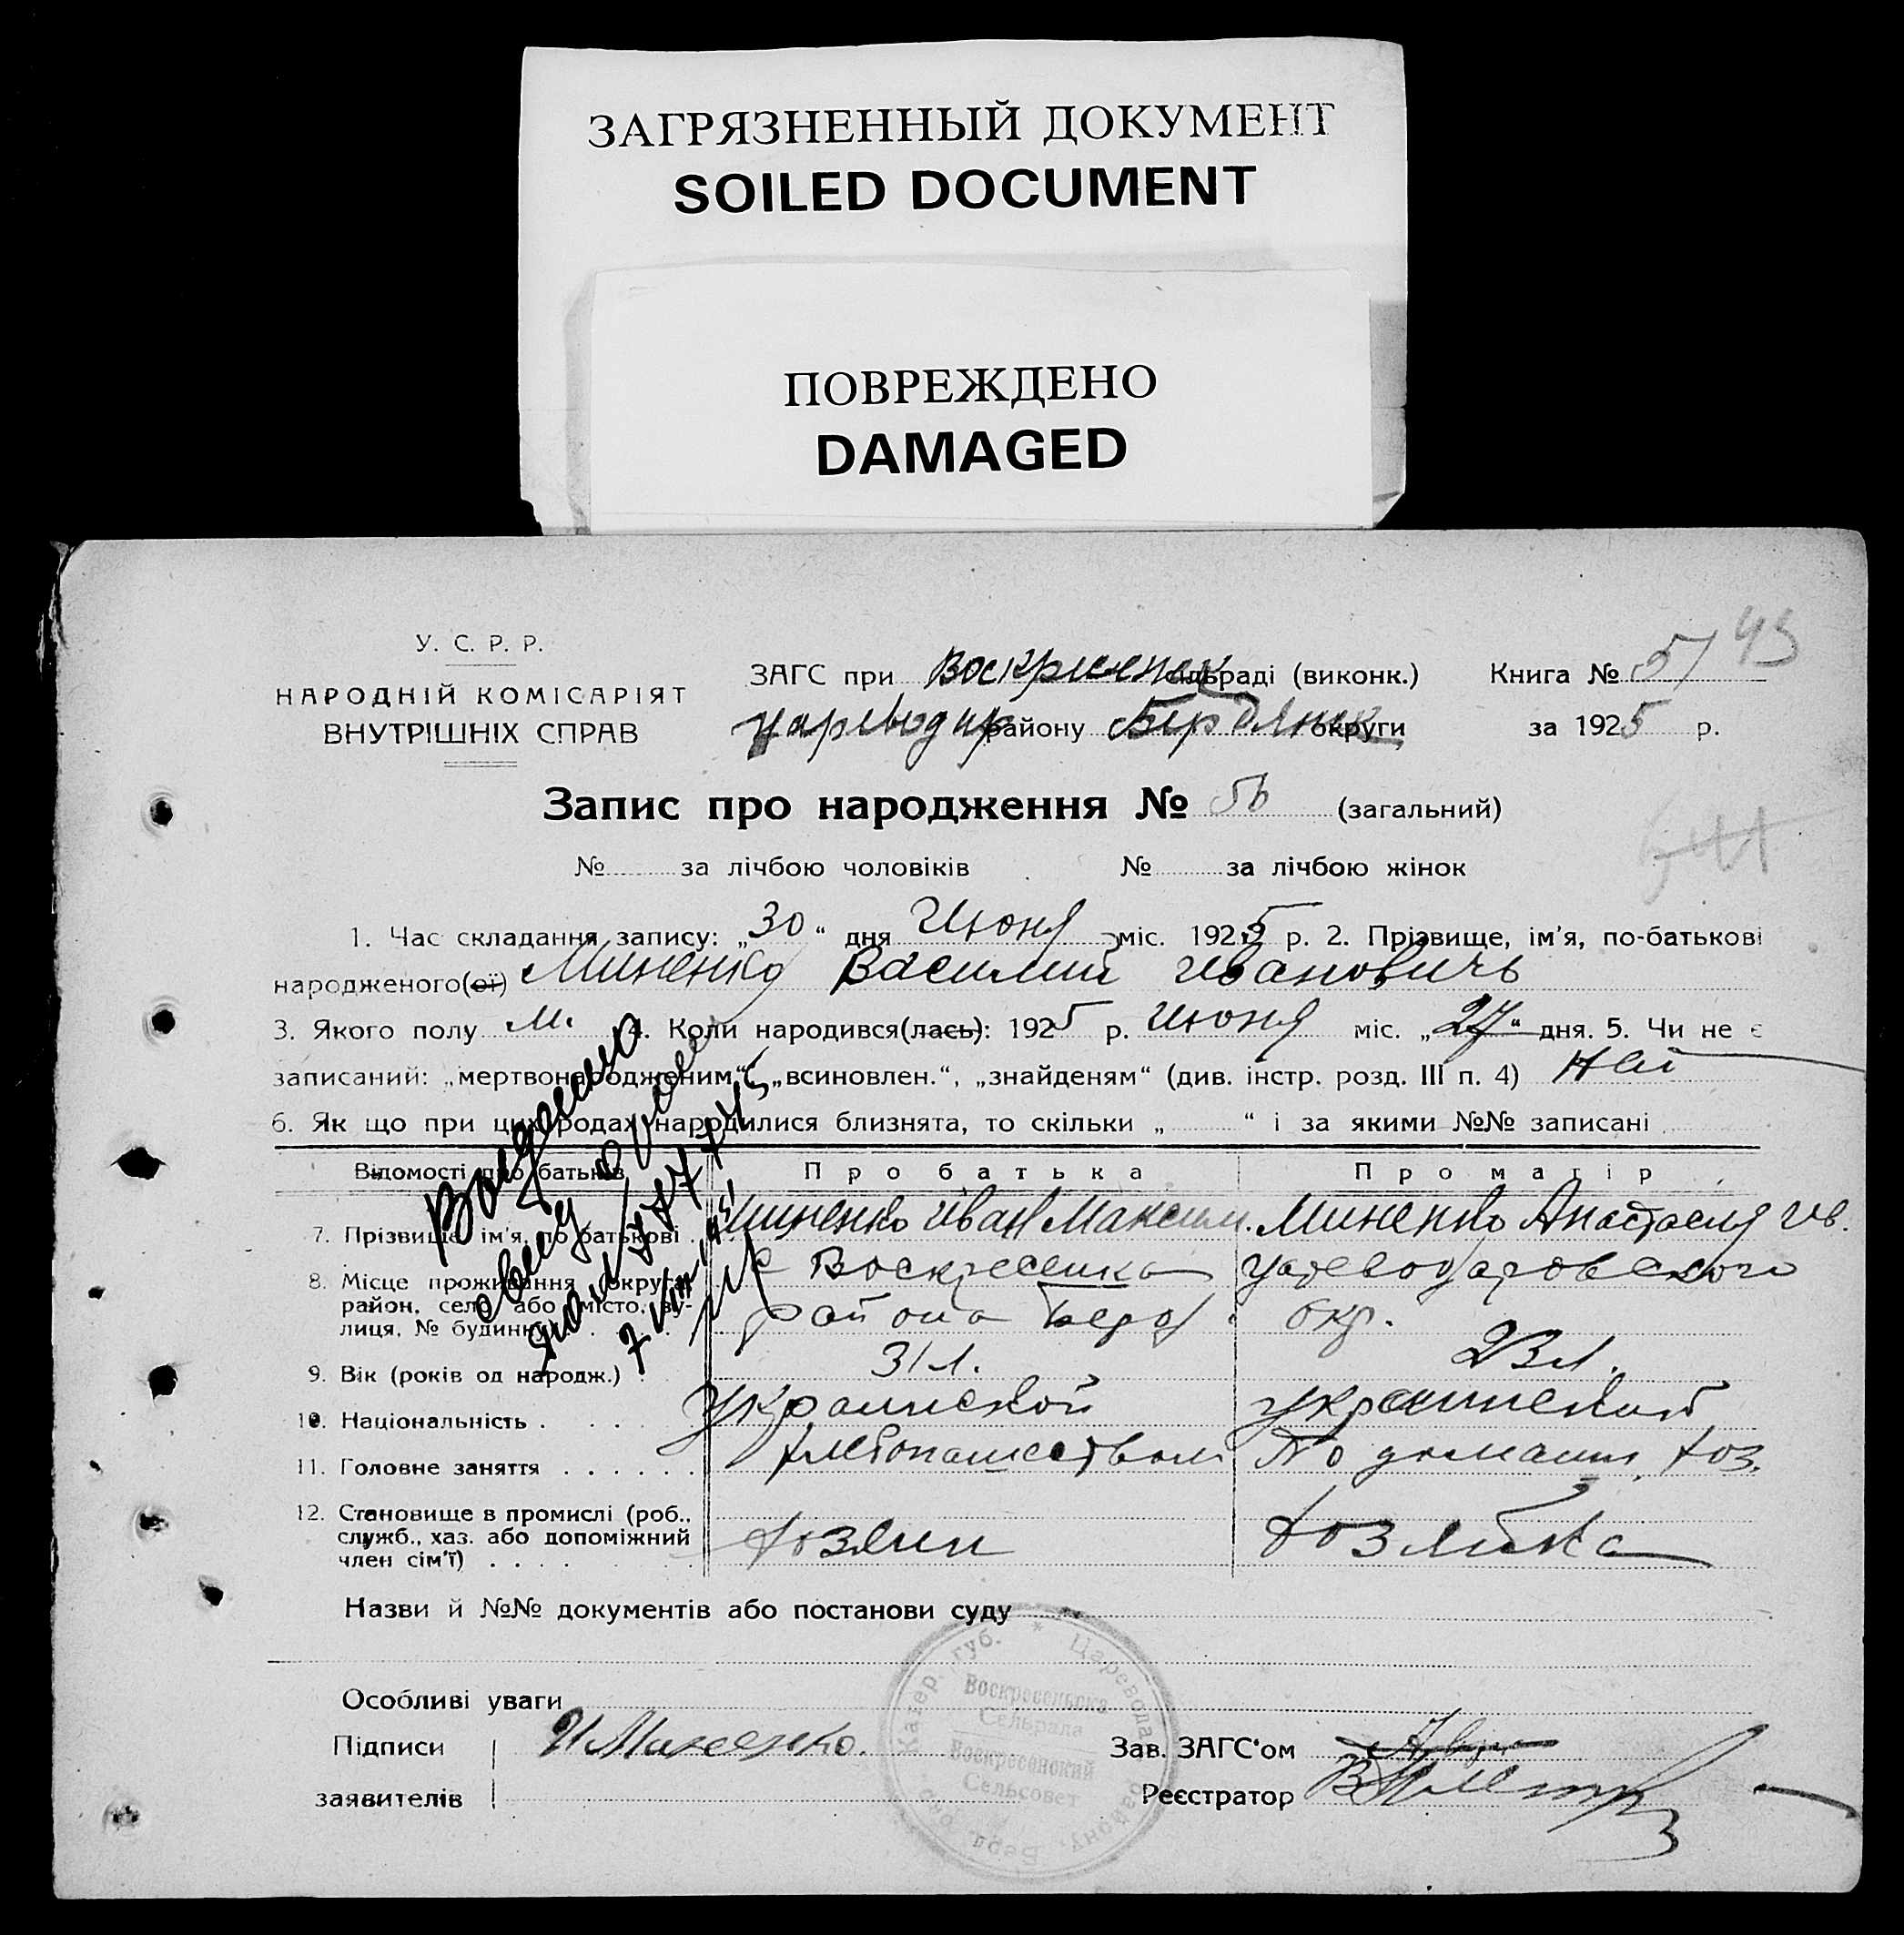 ЗАГРЯЗНЕННЫЙ ДОКУМЕНТ
SOILED DOCUMENT
ПОВРЕЖДЕНО
DAMAGED
45
У. С. Р. Р.
НАРОДНІЙ КОМІСАРІЯТ
ВНУТРІШНІХ СПРАВ
ЗАГС при Воскрисенск сільраді (виконк.) Книга № 5/
Царевода району Бердянск округи за 1925 р.
Запис про народження № 56 (загальний)
№ за лічбою чоловіків № за лічбою жінок
1. Час складання запису: „30“ дня Июня міс. 1925 р. 2. Прізвище, ім'я, по-батькові
народженого(ої) Миненко Василий Ивановичь
3. Якого полу м. 4. Коли народився(лась): 1925 р. Июня міс. „27“ дня. 5. Чи не є
записаний: „мертвонародженим“, „всиновлен.“, „знайденям“ (див. інстр. розд. III п. 4) Нет
6. Як що при цих родах народилися близнята, то скільки „ “ і за якими №№ записані
Відомості про батьків Про батька Про матір
7. Прізвище, ім'я, по батькові . Миненко Иван Максим. Миненко Анастасия Ив.
8. Місце проживання (округа, с Воскресенка Цареводаровского
район, село або місто, ву-
лиця, № будинку) . . района Берд. окр.
9. Вік (років од народж.) . 31 л. 23 л.
10. Національність . . . . Украинской украинской
11. Головне заняття . . . . . . хлебопашеством По домашн. хоз.
12. Становище в промислі (роб.,
служб., хаз. або допоміжний
член сім'ї) . . . . . хозяин хозяйка
Выдано
7 VIII
Назви й №№ документів або постанови суду
Особливі уваги
Підписи И Миненко. Зав. ЗАГС'ом
заявителів Реєстратор
Катер. губ. * Царевода району, Берд. окр.
Воскресенська
Сельрада
Воскресенский
Сельсовет